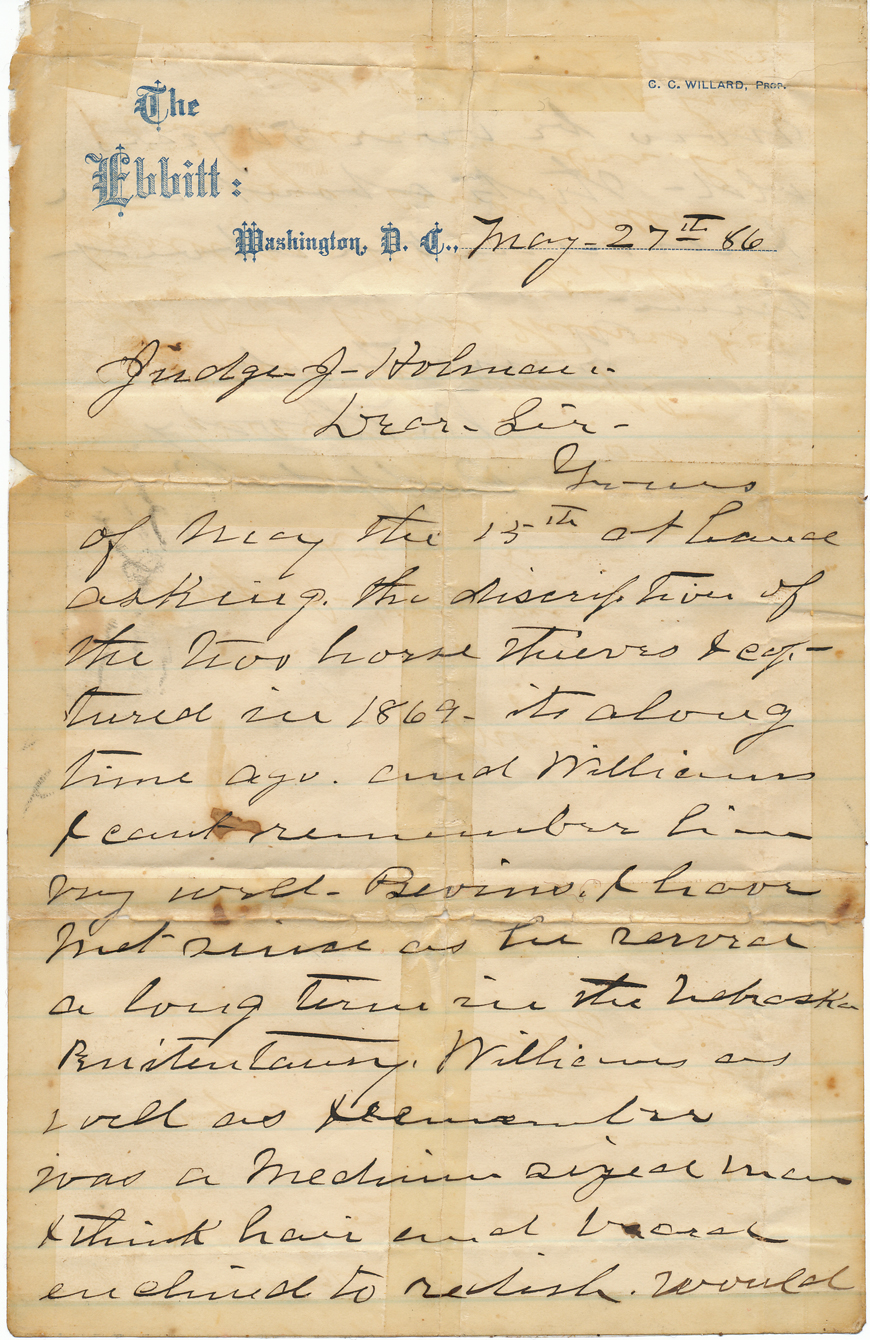 C. C. WILLARD, PROP.
The
Ebbitt:
Washington, D. C., May - 27th 86
Judge J - Holman.
Dear - Sir -
Yours
of May the 15th at hand
asking. the discription of
the two horse thieves I cap-
tured in 1869 - its along
time ago. and Williams
I cant remember him
very well - Bevins. I have
Met since as he served
a long term in the Nebraska
Penitentaury. Williams as
well as I remember
was a Medium sized man
I think hair and beard
enclined to redish. would